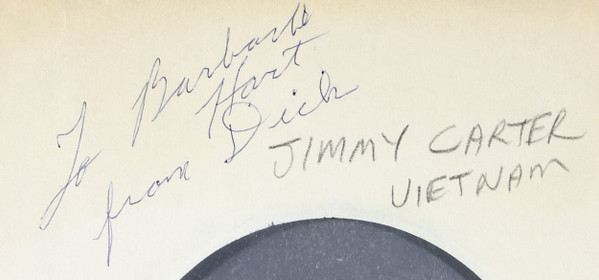 To Barbara
Hart
from Dick
JIMMY CARTER
VIETNAM